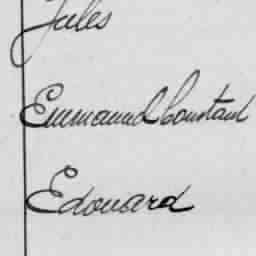 Jules
Emmanuel Constant
Edouard